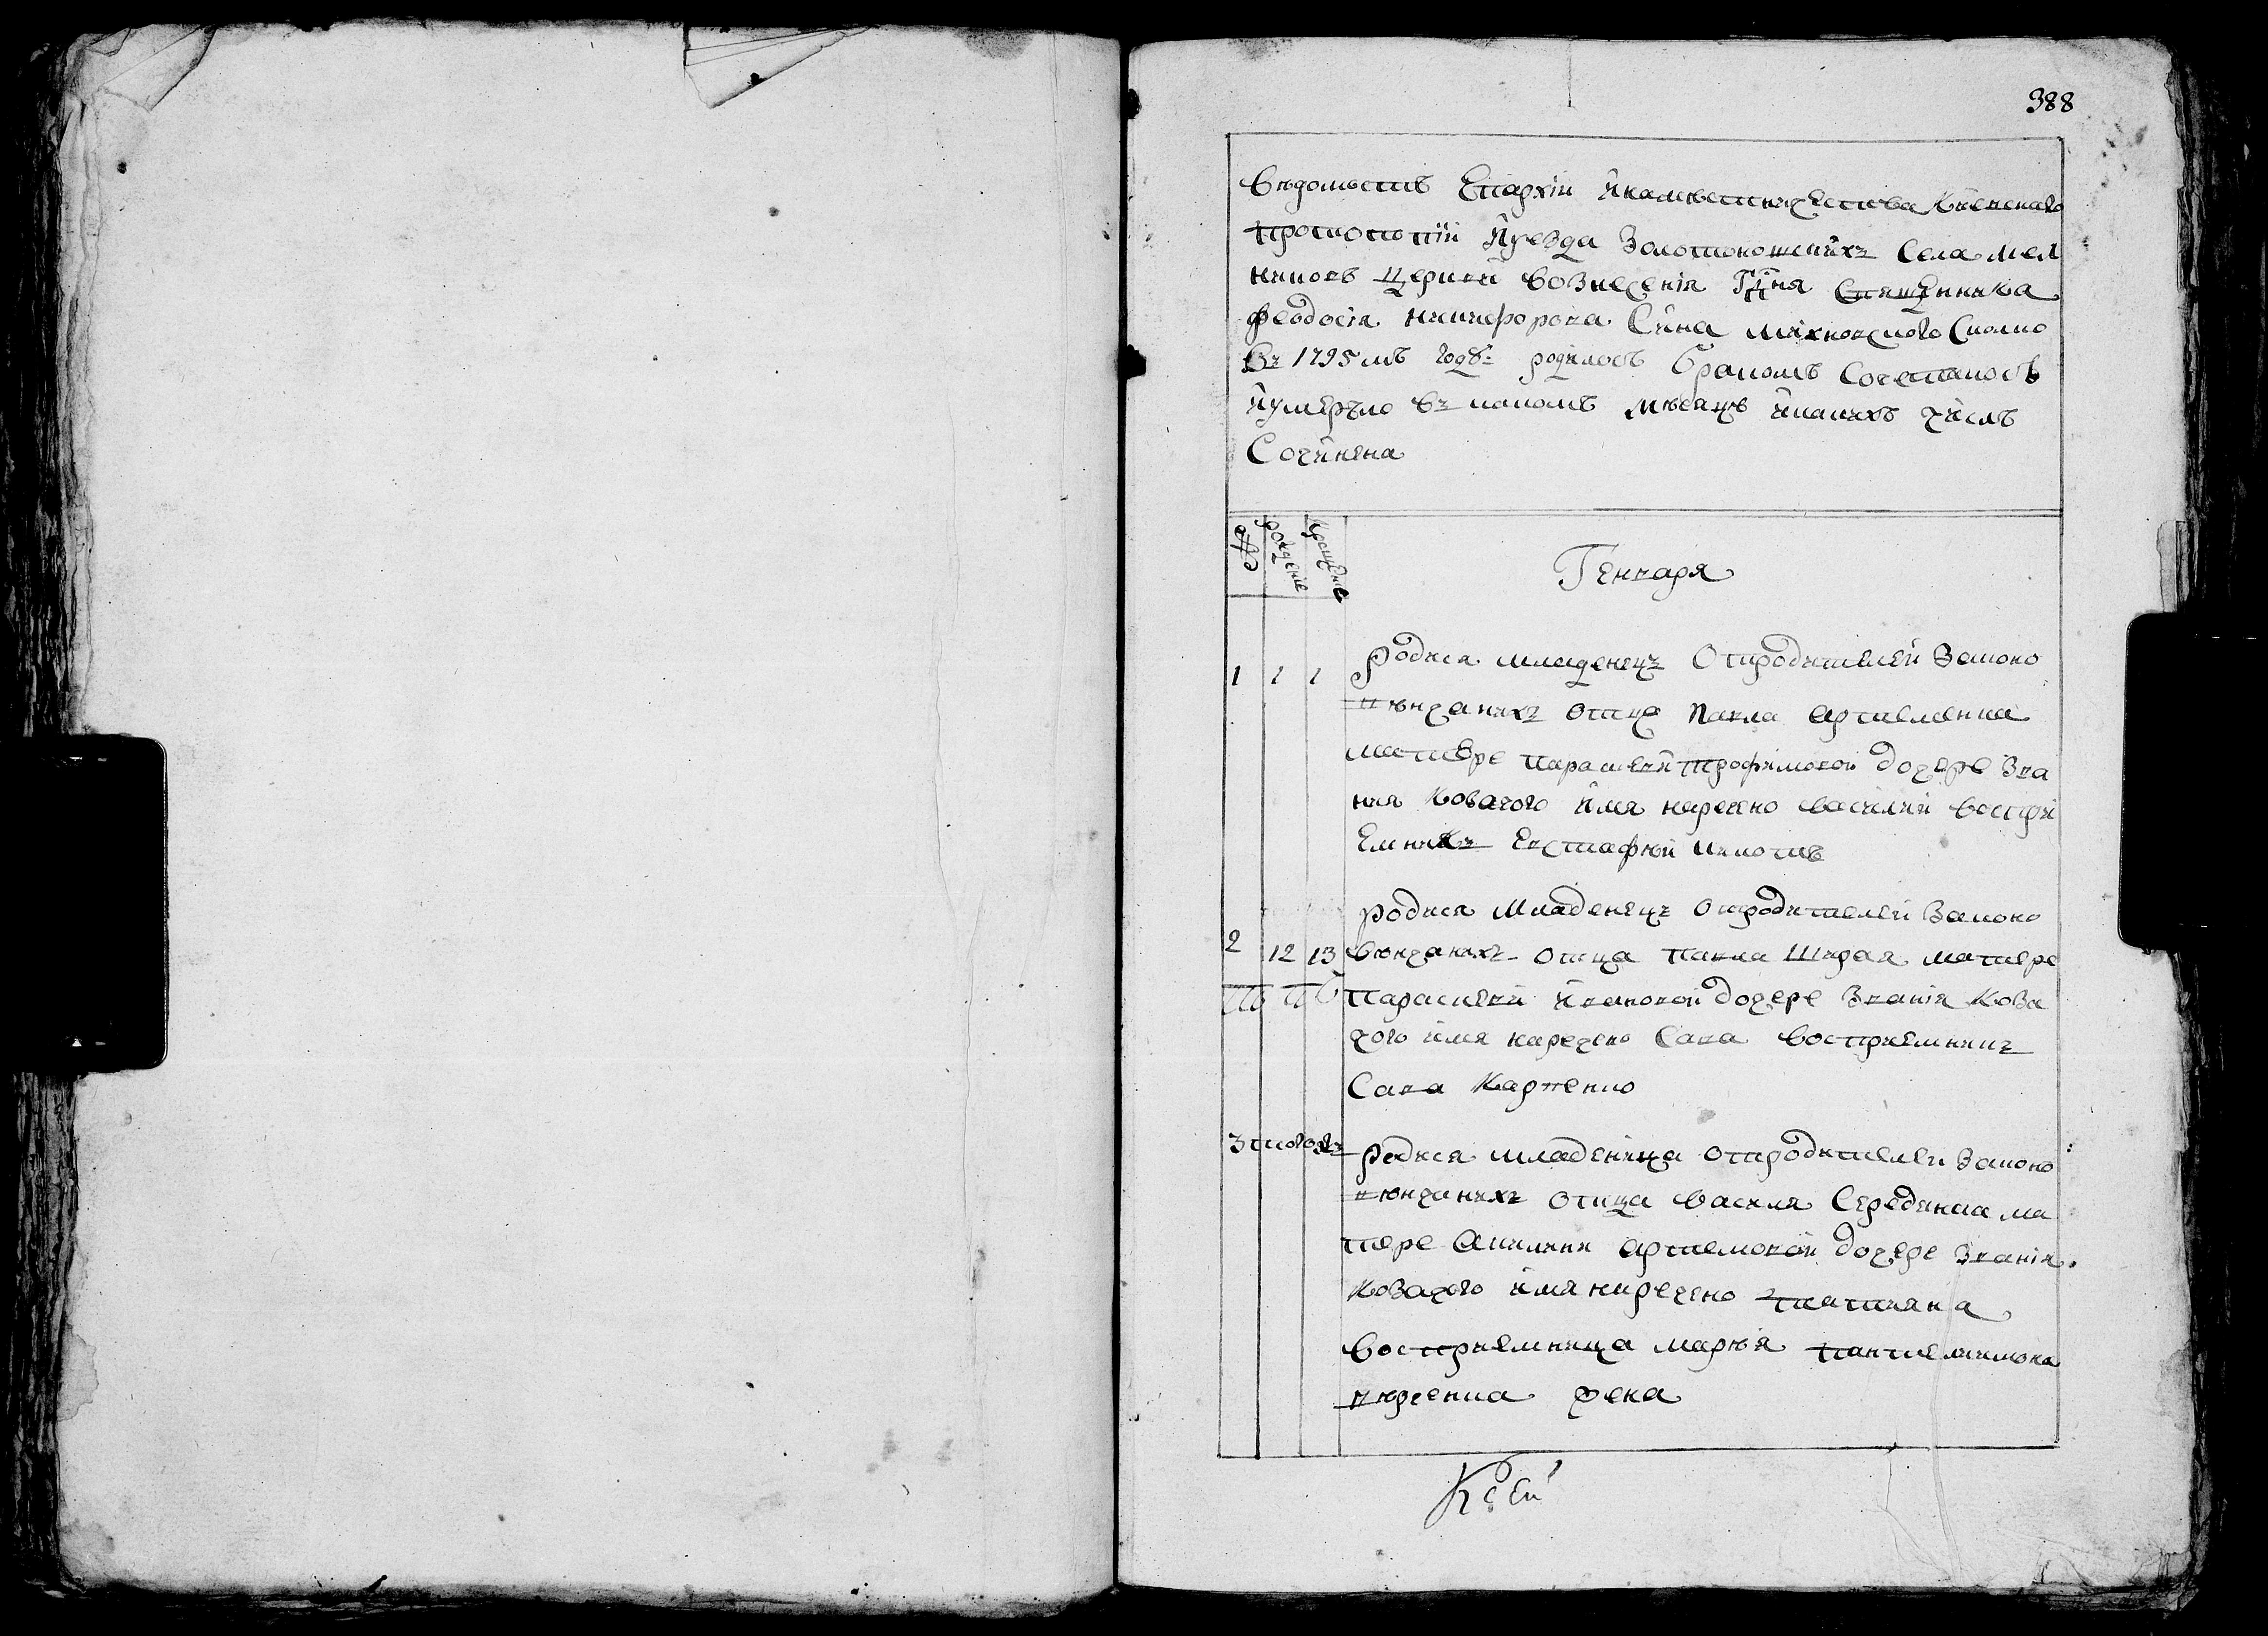 388
Вѣдомость Епархіи и намѣстничества Кіевскаго
протопопіи и уезда Золотоношскихъ Села мел
никовъ церкви вознесенія Гдня Священника
Феодосія никифорова Сына Сколко
въ 1795мъ годѣ родилось бракомъ Сочеталось
и умерьло въ каком мѣсяцѣ и какихъ числъ
Сочинена
рожденіе
крещеніе
Генваря
1 1 1 родися младенецъ От родителей Законо
вѣнчаныхъ отца Павла артеменка
матере параскевй трофимовой дочере Зва
ния Козачого имя наречено василий воспри
Емникъ Евстафий
2 12 13 родися Младенецъ От родителей Законо
вѣнчаныхъ отца павла Шерая матере
параскевй ивановой дочере Званія Коза
чого имя наречено Сава восприемникъ
Сава Карпенко
3 тогожъ родися младеница от родителей Законо
вѣнчаныхъ отца василя Серединка ма
тере Акилины артемовой дочере Званія
Козачого имя наречено татияна
восприемница марія пантелимона
жена